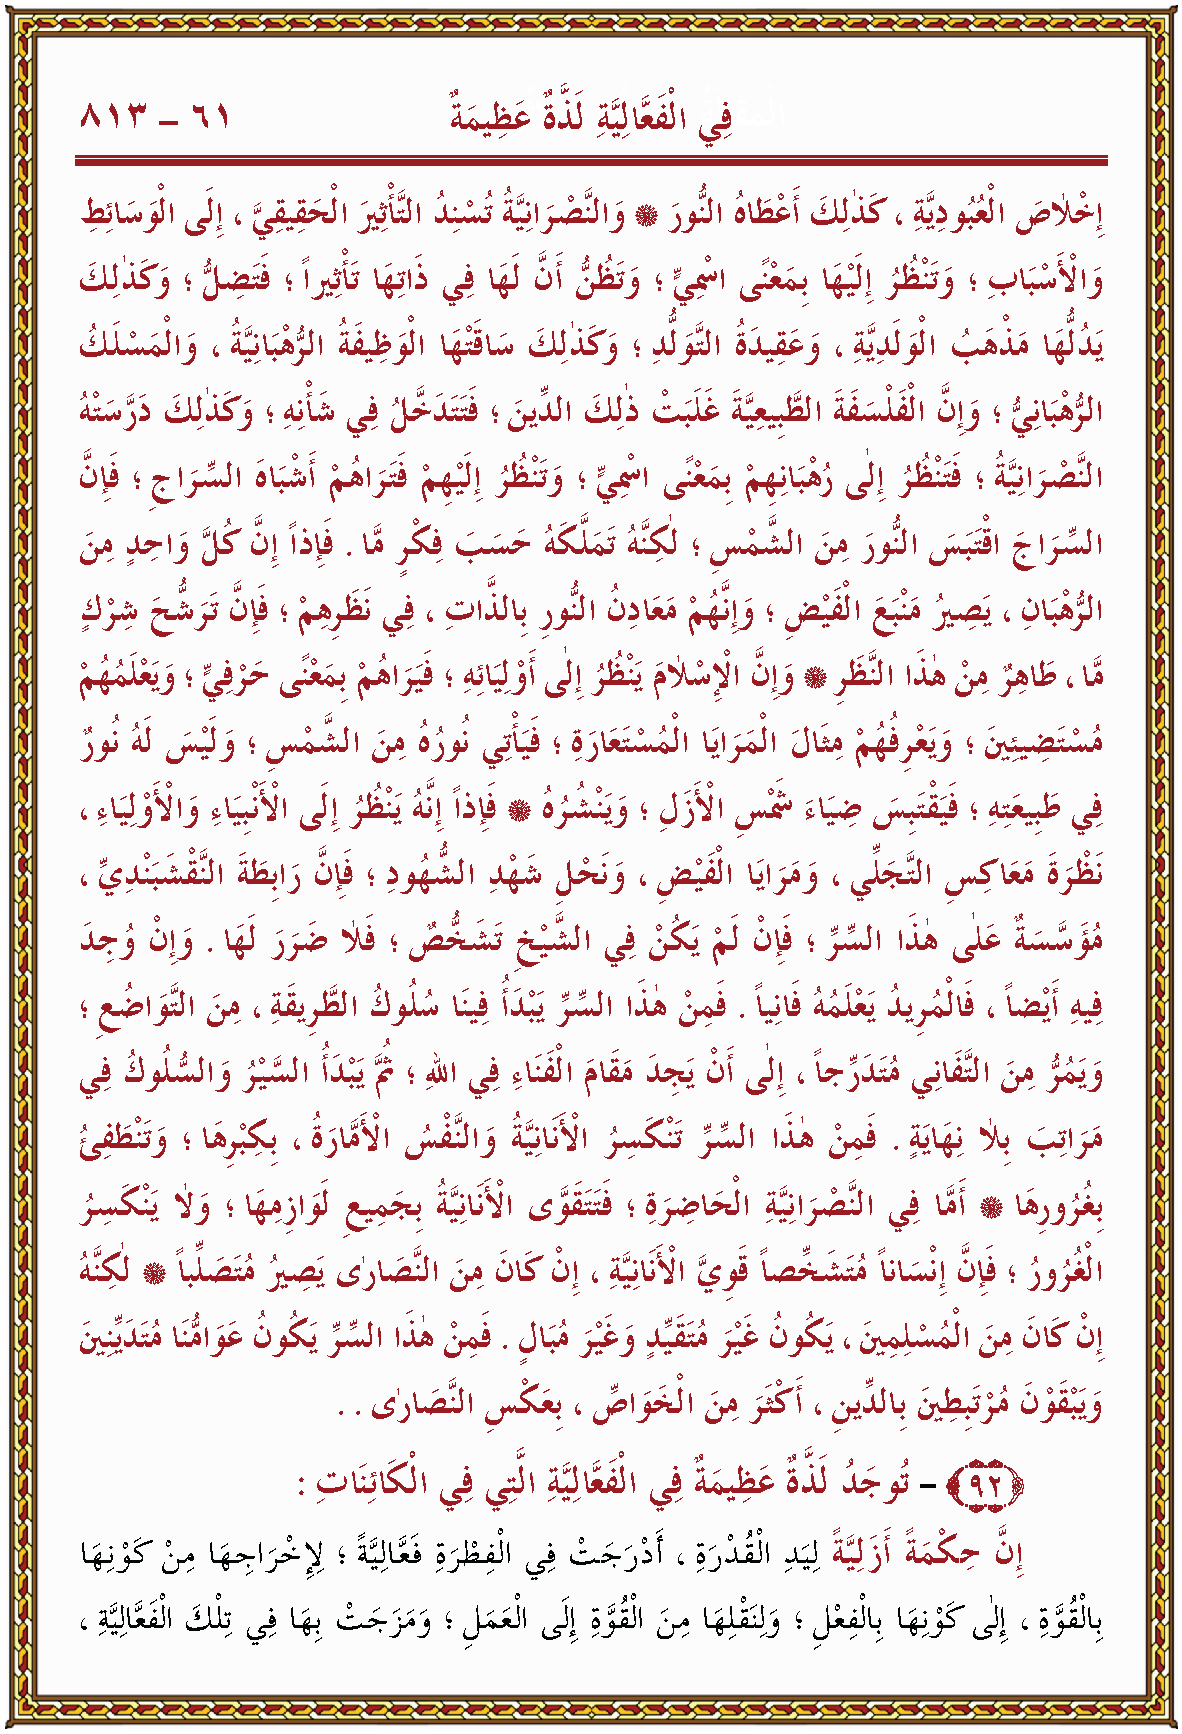 فِي الْفَعَّالِيَّةِ لَذَّةٌ عَظِيمَةٌ ٦١ – ٨١٣
إِخْلاَصَ الْعُبُودِيَّةِ ، كَذٰلِكَ أَعْطَاهُ النُّورَ ۞ وَالنَّصْرَانِيَّةُ تُسْنِدُ التَّأْثِيرَ الْحَقِيقِيَّ ، إِلَى الْوَسَائِطِ
وَالْأَسْبَابِ ؛ وَتَنْظُرُ إِلَيْهَا بِمَعْنًى اسْمِيٍّ ؛ وَتَظُنُّ أَنَّ لَهَا فِي ذَاتِهَا تَأْثِيراً ؛ فَتَضِلُّ ؛ وَكَذٰلِكَ
يَدُلُّهَا مَذْهَبُ الْوَلَدِيَّةِ ، وَعَقِيدَةُ التَّوَلُّدِ ؛ وَكَذٰلِكَ سَاقَتْهَا الْوَظِيفَةُ الرُّهْبَانِيَّةُ ، وَالْمَسْلَكُ
الرُّهْبَانِيُّ ؛ وَإِنَّ الْفَلْسَفَةَ الطَّبِيعِيَّةَ غَلَبَتْ ذٰلِكَ الدِّينَ ؛ فَتَتَدَخَّلُ فِي شَأْنِهِ ؛ وَكَذٰلِكَ دَرَّسَتْهُ
النَّصْرَانِيَّةُ ؛ فَتَنْظُرُ إِلٰى رُهْبَانِهِمْ بِمَعْنًى اسْمِيٍّ ؛ وَتَنْظُرُ إِلَيْهِمْ فَتَرَاهُمْ أَشْبَاهَ السِّرَاجِ ؛ فَإِنَّ
السِّرَاجَ اقْتَبَسَ النُّورَ مِنَ الشَّمْسِ ؛ لٰكِنَّهُ تَمَلَّكَهُ حَسَبَ فِكْرٍ مَّا . فَإِذاً إِنَّ كُلَّ وَاحِدٍ مِنَ
الرُّهْبَانِ ، يَصِيرُ مَنْبَعَ الْفَيْضِ ؛ وَإِنَّهُمْ مَعَادِنُ النُّورِ بِالذَّاتِ ، فِي نَظَرِهِمْ ؛ فَإِنَّ تَرَشُّحَ شِرْكٍ
مَّا ، ظَاهِرٌ مِنْ هٰذَا النَّظَرِ ۞ وَإِنَّ الْإِسْلاَمَ يَنْظُرُ إِلٰى أَوْلِيَائِهِ ؛ فَيَرَاهُمْ بِمَعْنًى حَرْفِيٍّ ؛ وَيَعْلَمُهُمْ
مُسْتَضِيئِينَ ؛ وَيَعْرِفُهُمْ مَثَالَ الْمَرَايَا الْمُسْتَعَارَةِ ؛ فَيَأْتِي نُورُهُ مِنَ الشَّمْسِ ؛ وَلَيْسَ لَهُ نُورٌ
فِي طَبِيعَتِهِ ؛ فَيَقْتَبِسَ ضِيَاءَ شَمْسِ الْأَزَلِ ؛ وَيَنْشُرُهُ ۞ فَإِذاً إِنَّهُ يَنْظُرُ إِلَى الْأَنْبِيَاءِ وَالْأَوْلِيَاءِ ،
نَظْرَةَ مَعَاكِسِ التَّجَلِّي ، وَمَرَايَا الْفَيْضِ ، وَنَحْلِ شَهْدِ الشُّهُودِ ؛ فَإِنَّ رَابِطَةَ النَّقْشَبَنْدِيِّ ،
مُؤَسَّسَةٌ عَلٰى هٰذَا السِّرِّ ؛ فَإِنْ لَمْ يَكُنْ فِي الشَّيْخِ تَشَخُّصٌ ؛ فَلاَ ضَرَرَ لَهَا . وَإِنْ وُجِدَ
فِيهِ أَيْضاً ، فَالْمُرِيدُ يَعْلَمُهُ فَانِياً . فَمِنْ هٰذَا السِّرِّ يَبْدَأُ فِينَا سُلُوكُ الطَّرِيقَةِ ، مِنَ التَّوَاضُعِ ؛
وَيَمُرُّ مِنَ التَّفَانِي مُتَدَرِّجاً ، إِلٰى أَنْ يَجِدَ مَقَامَ الْفَنَاءِ فِي اللهِ ؛ ثُمَّ يَبْدَأُ السَّيْرُ وَالسُّلُوكُ فِي
مَرَتِبَ بِلاَ نِهَايَةٍ . فَمِنْ هٰذَا السِّرِّ تَنْكَسِرُ الْأَنَانِيَّةُ وَالنَّفْسُ الْأَمَّارَةُ ، بِكِبْرِهَا ؛ وَتَنْطَفِئُ
بِغُرُورِهَا ۞ أَمَّا فِي النَّصْرَانِيَّةِ الْحَاضِرَةِ ؛ فَتَتَقَوَّى الْأَنَانِيَّةُ بِجَمِيعِ لَوَازِمِهَا ؛ وَلاَ يَنْكَسِرُ
الْغُرُورُ ؛ فَإِنَّ إِنْسَاناً مُتَشَخِّصاً قَوِيَّ الْأَنَانِيَّةِ ، إِنْ كَانَ مِنَ النَّصَارٰى يَصِيرُ مُتَصَلِّباً ۞ لٰكِنَّهُ
إِنْ كَانَ مِنَ الْمُسْلِمِينَ ، يَكُونُ غَيْرَ مُتَقَيِّدٍ وَغَيْرَ مُبَالٍ . فَمِنْ هٰذَا السِّرِّ يَكُونُ عَوَامُّنَا مُتَدَيِّنِينَ
وَيَبْقَوْنَ مُرْتَبِطِينَ بِالدِّينِ ، أَكْثَرَ مِنَ الْخَوَاصِّ ، بِعَكْسِ النَّصَارٰى . .
﴿٩٢﴾ – تُوجَدُ لَذَّةٌ عَظِيمَةٌ فِي الْفَعَّالِيَّةِ الَّتِي فِي الْكَائِنَاتِ :
إِنَّ حِكْمَةً أَزَلِيَّةً لِيَدِ الْقُدْرَةِ ، أَدْرَجَتْ فِي الْفِطْرَةِ فَعَّالِيَّةً ؛ لِإِخْرَاجِهَا مِنْ كَوْنِهَا
بِالْقُوَّةِ ، إِلٰى كَوْنِهَا بِالْفِعْلِ ؛ وَلِنَقْلِهَا مِنَ الْقُوَّةِ إِلَى الْعَمَلِ ؛ وَمَزَجَتْ بِهَا فِي تِلْكَ الْفَعَّالِيَّةِ ،